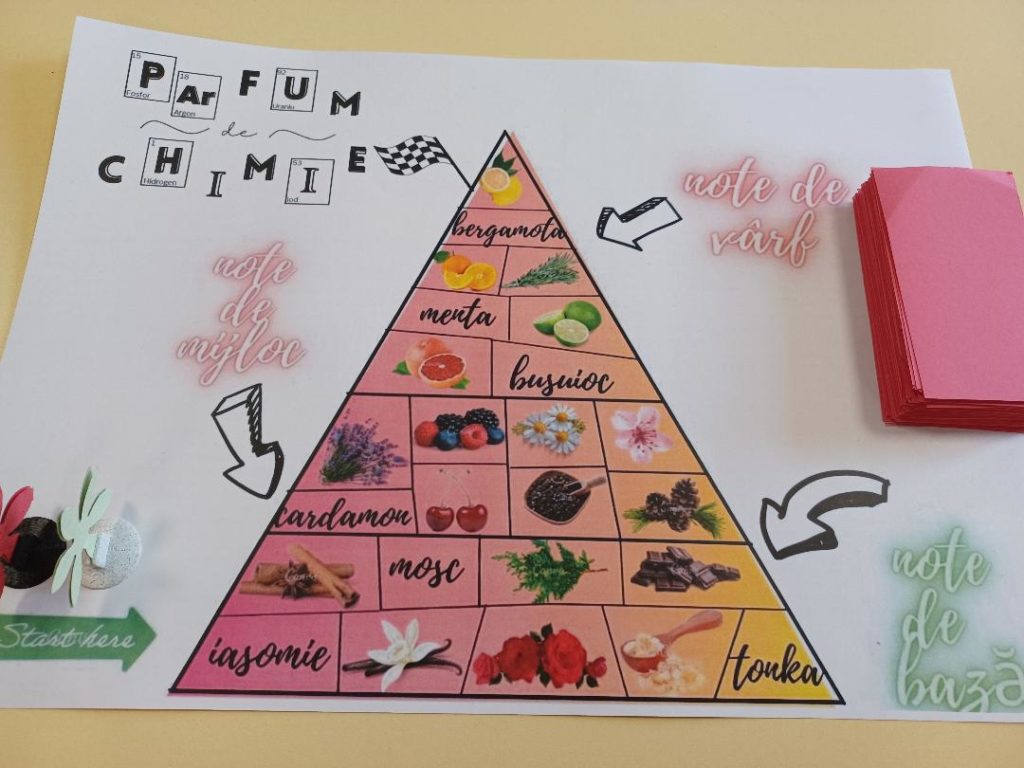 15 18 92
PAr FUM
Fosfor Argon Uraniu
de
1 53
CHIMIE
Hidrogen Iod
note de
vârf
bergamota
note
de
mijloc
menta
busuioc
cardamon
mosc
note
de
bază
Start here
iasomie
tonka